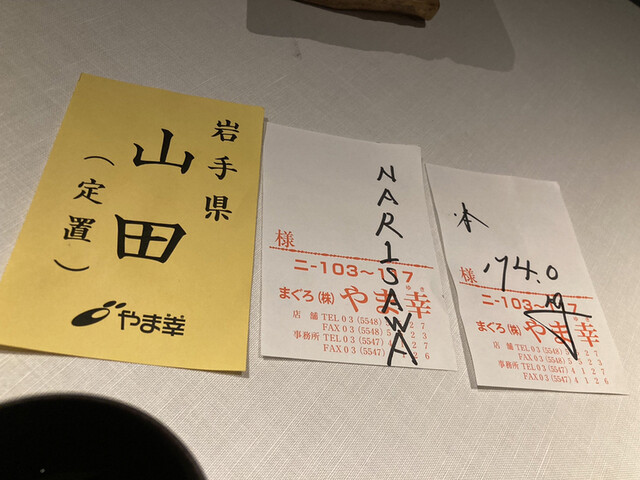 岩手県
山田
（定置）
やま幸
NARISAWA
様
ニ-103~1 7
まぐろ(株) やま幸
ゆき
店舗 TEL03(5548) 27
FAX03(5548)5 23
事務所 TEL03(5547)4 27
FAX03(5547) 26
本
174.0
様
ニ-103~ 7
まぐろ(株) やま幸
店舗 TEL03(5548) 27
FAX03(5548)5523
事務所 TEL03(5547)4127
FAX03(5547)4126